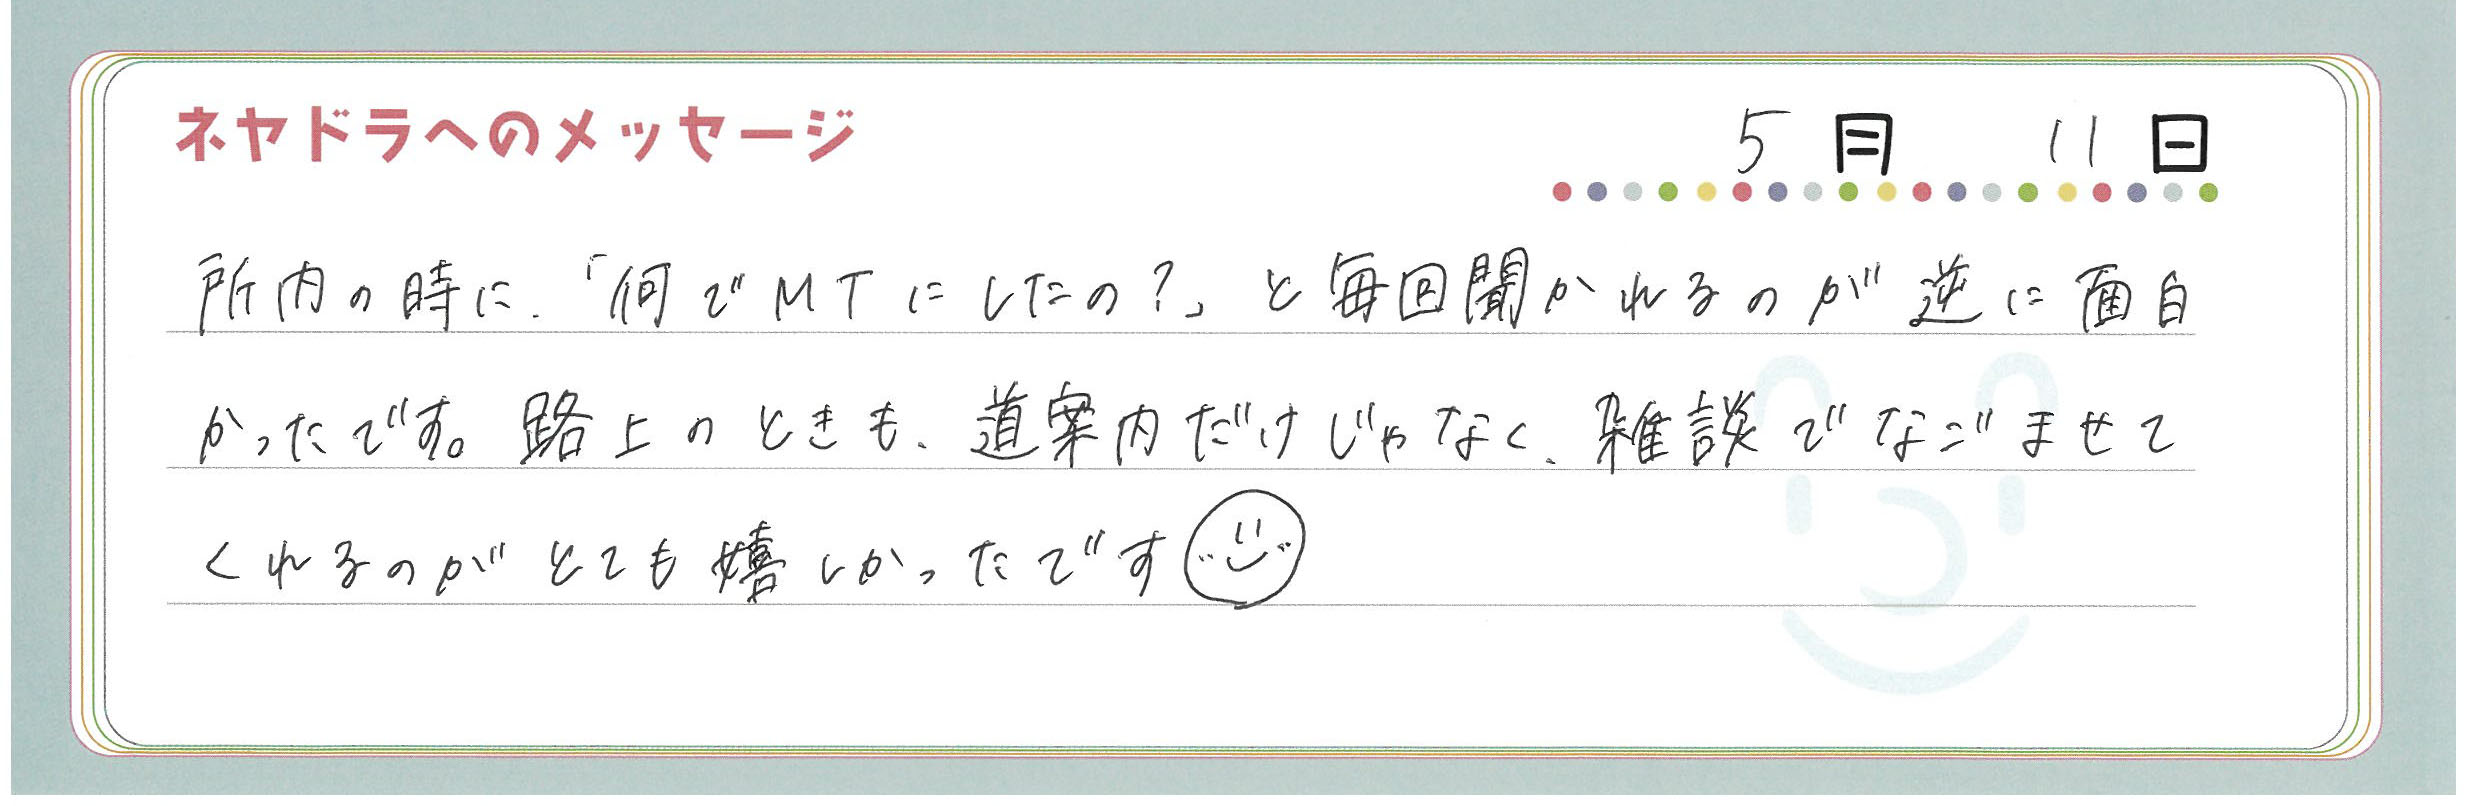 ネヤドラへのメッセージ
5月 11日
所内の時に、「何でMTにしたの?」と毎回聞かれるのが逆に面白
かったです。路上のときも、道案内だけじゃなく、雑談でなごませて
くれるのがとても嬉しかったです